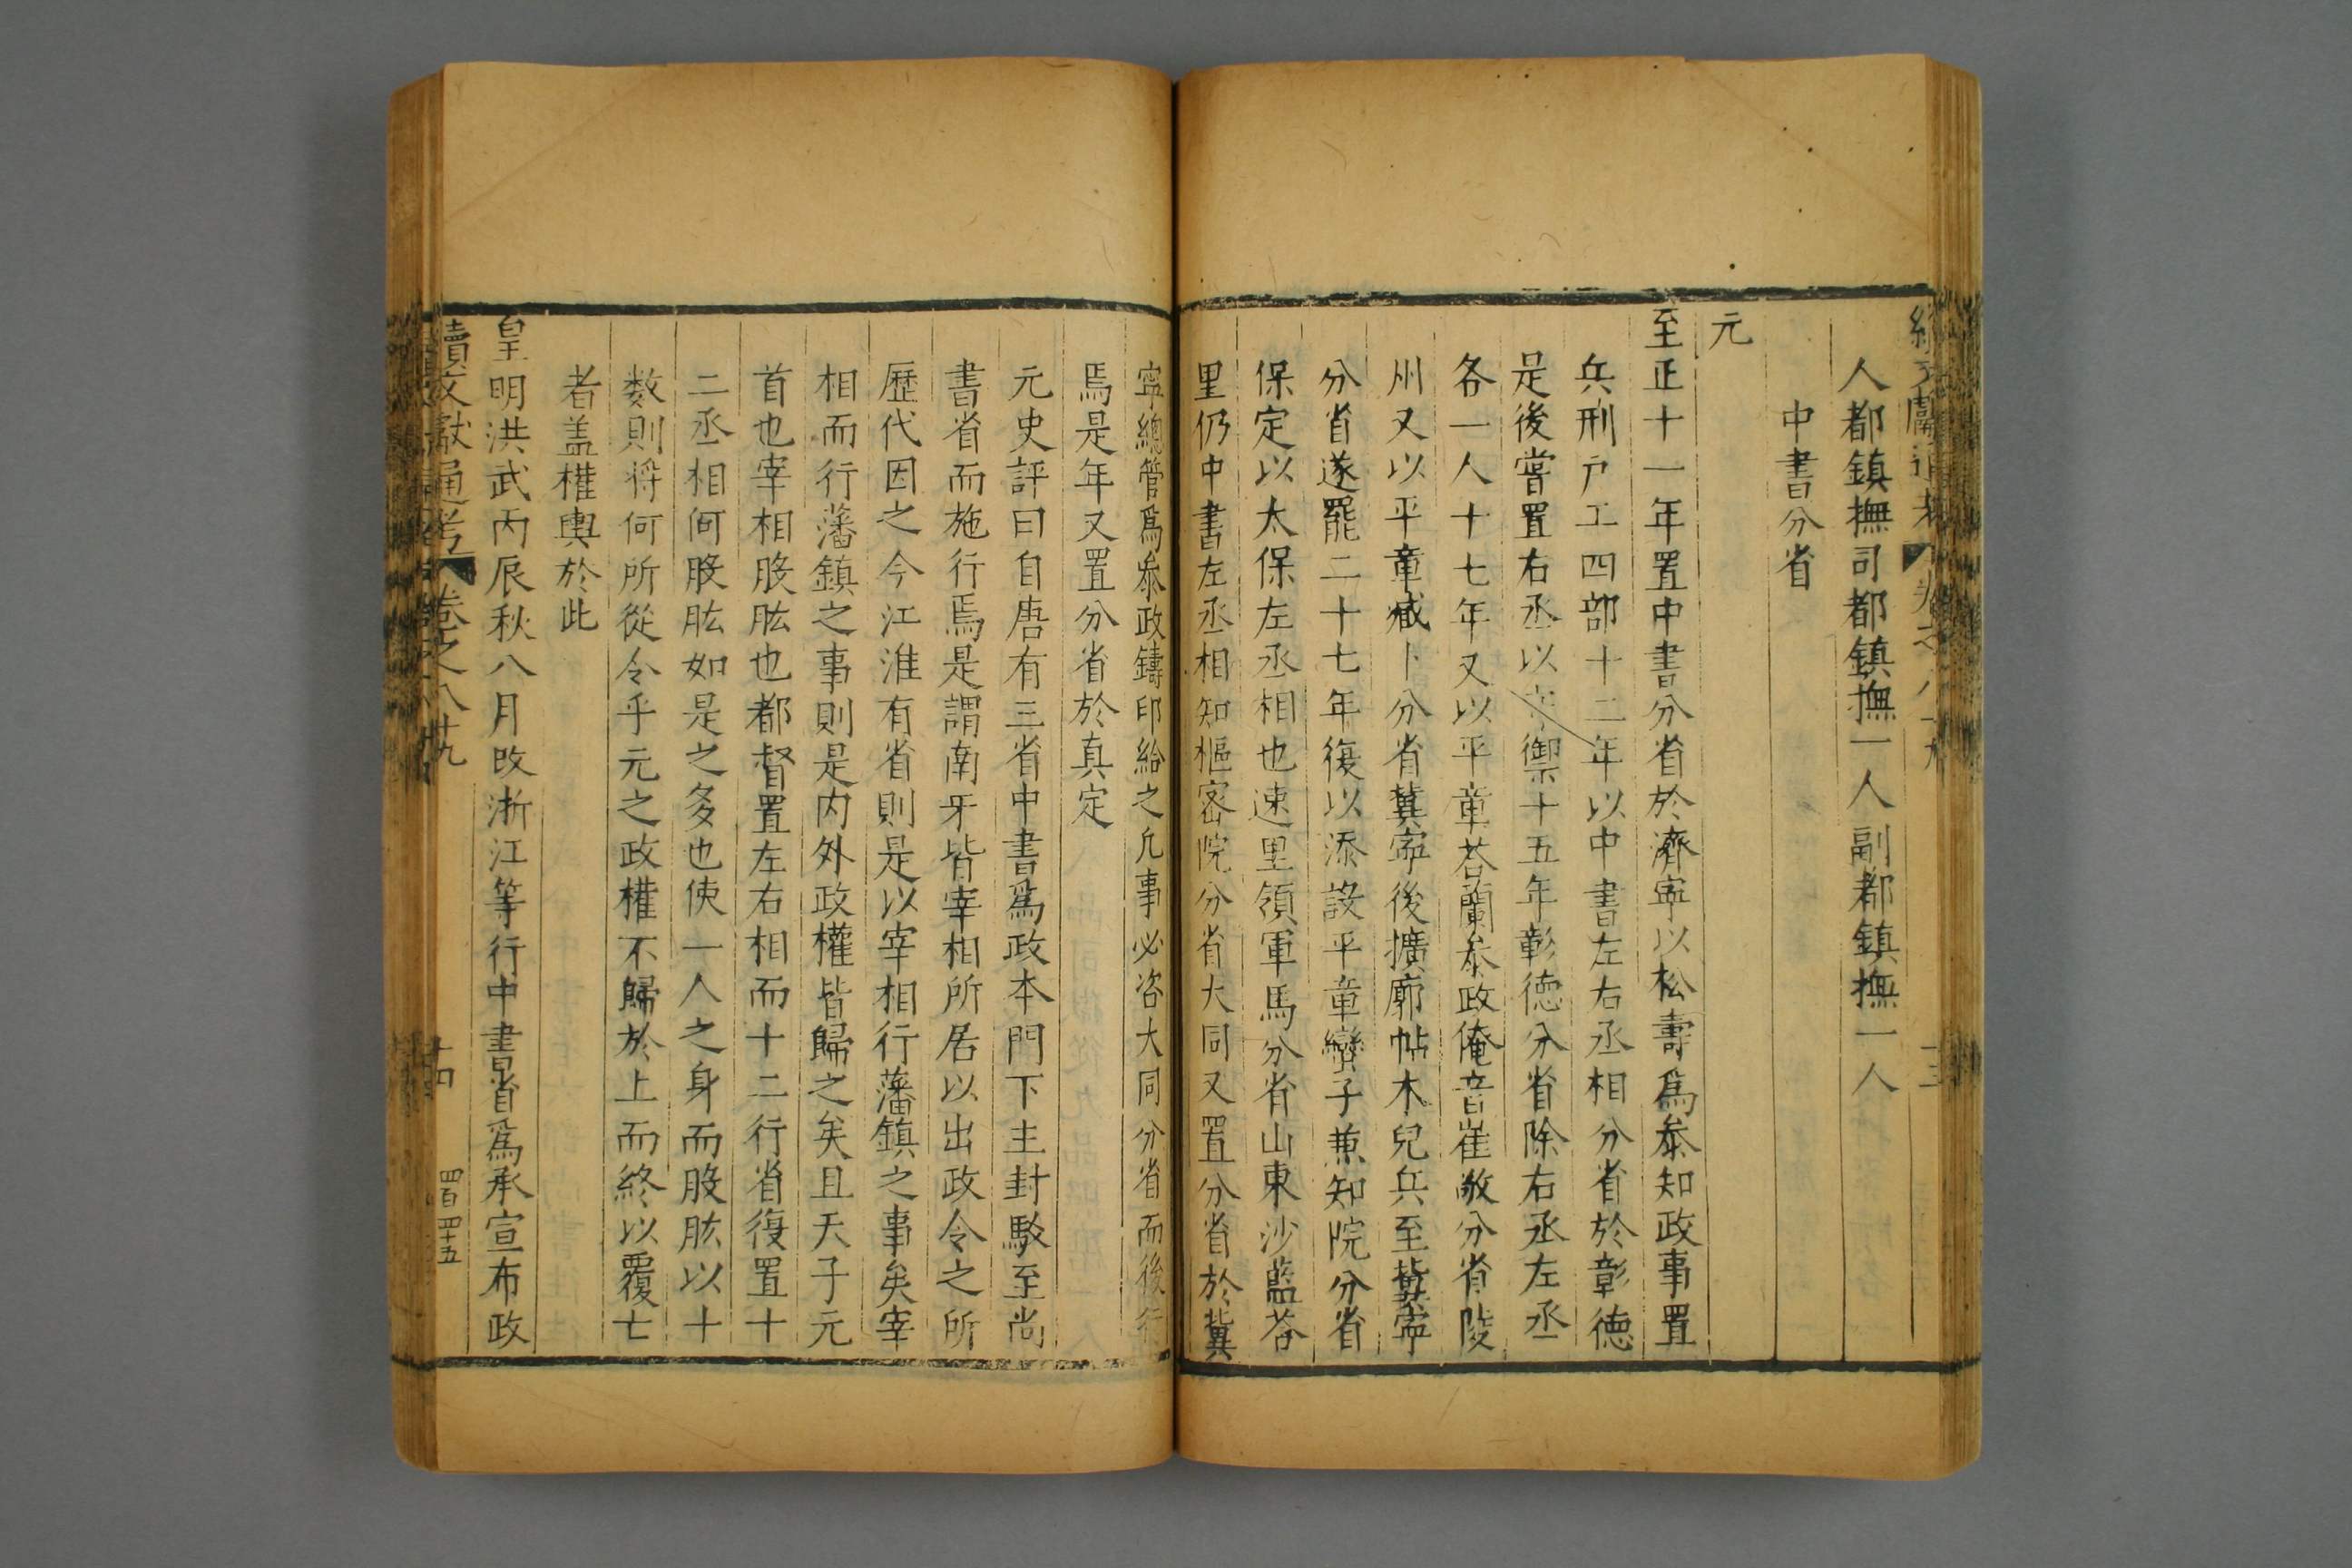 人都鎮撫司都鎮撫一人副都鎮撫一人
中書分省
元
至正十一年置中書分省於濟寧以松壽爲叅知政事置
兵刑户工四部十二年以中書左右丞相分省於彰德
是後嘗置右丞以禦十五年彰德分省除右丞左丞
各一人十七年又以平章荅蘭叅政俺音崔敬分省陵
州又以平章臧卜分省冀寧後擴廓帖木兒兵至冀寧
分省遂罷二十七年復以添設平章蠻子兼知院分省
保定以太保左丞相也速里領軍馬分省山東沙藍荅
里仍中書左丞相知樞密院分省大同又置分省於冀
寧總管爲叅政鑄印給之凡事必咨大同分省而後行
焉是年又置分省於真定
元史評曰自唐有三省中書爲政本門下主封駁至尚
書省而施行焉是謂南牙皆宰相所居以出政令之所
歷代因之今江淮有省則是以宰相行藩鎮之事矣宰
相而行藩鎮之事則是内外政權皆歸之矣且天子元
首也宰相股肱也都督置左右相而十二行省復置十
二丞相何股肱如是之多也使一人之身而股肱以十
数則将何所從令乎元之政權不歸於上而終以覆亡
者盖權輿於此
皇明洪武丙辰秋八月改浙江等行中書省爲承宣布政
續文獻通考 卷之八十九 十四 四百四十五